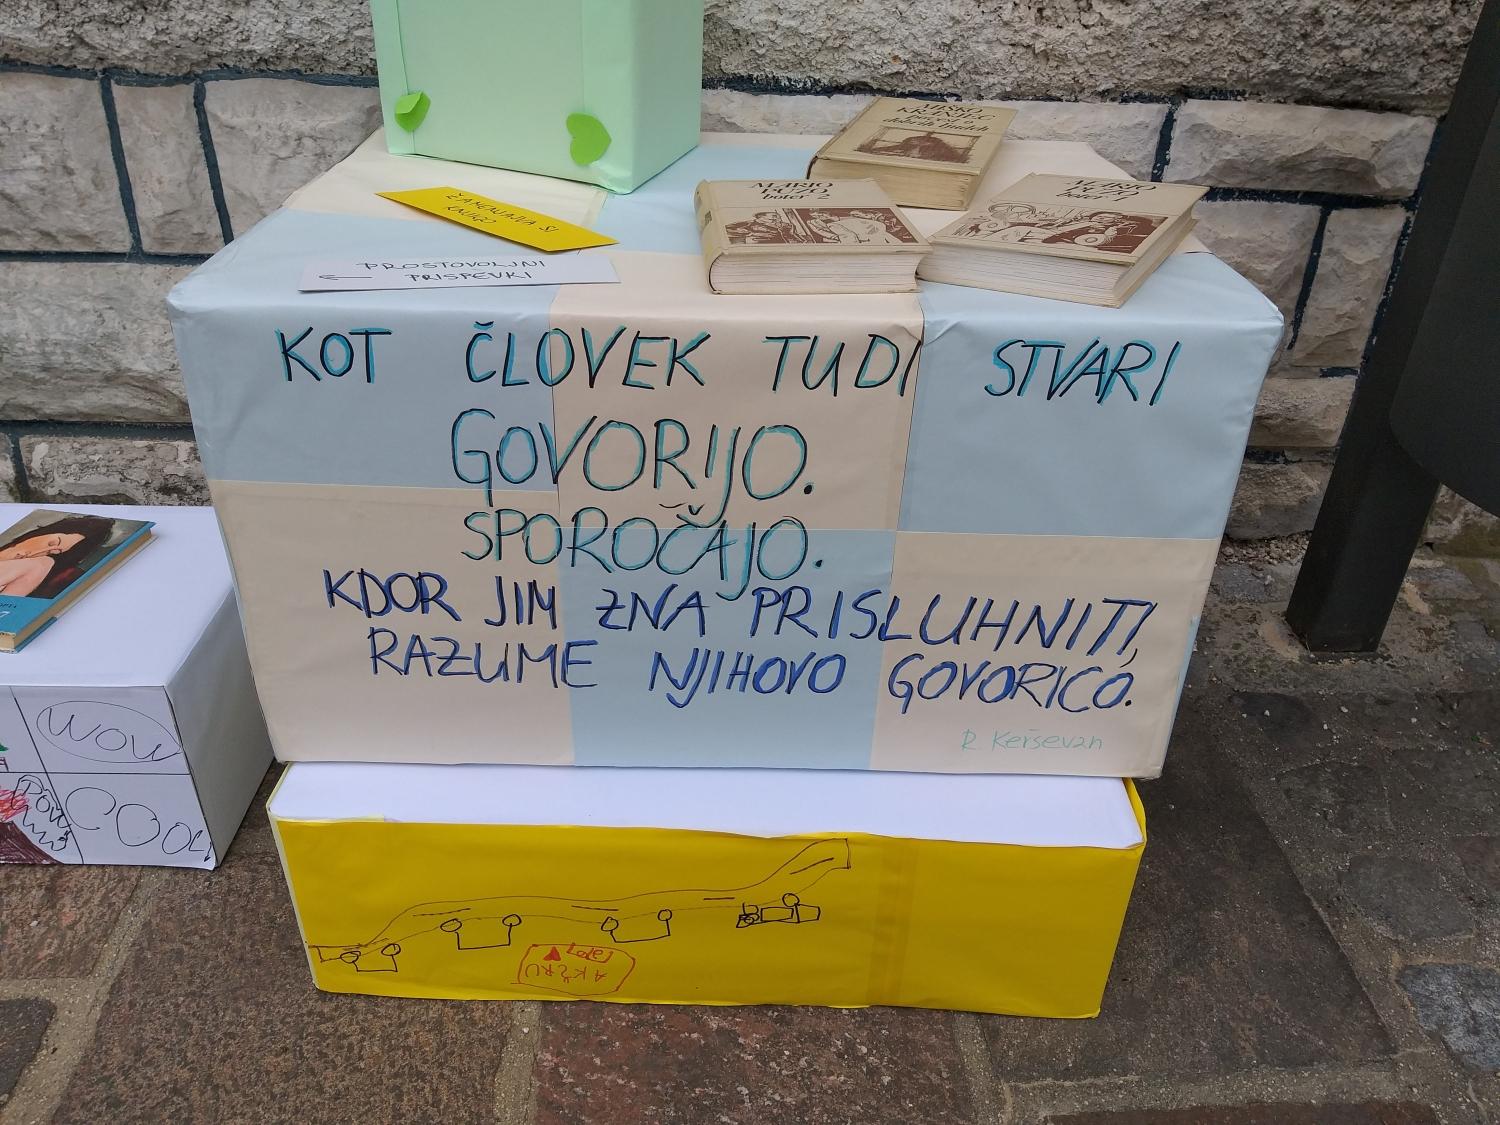 MIŠKO
KRANJEC
povest o
dobrih ljudeh
MARIO
PUZO
boter 2
MARIO
PUZO
boter 1
ZAMENJAJVA SI
KNJIGO
PROSTOVOLJNI
PRISPEVKI
KOT ČLOVEK TUDI STVARI
GOVORIJO.
SPOROČAJO.
KDOR JIM ZNA PRISLUHNITI,
RAZUME NJIHOVO GOVORICO.
R. Kerševan
WOW
POW
COOL